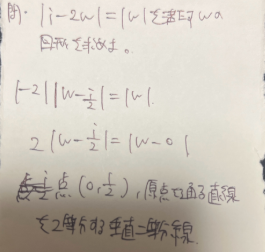 問. |i-2w|=|w|を満たすwの
図形を求めよ。
|-2||w-\frac{i}{2}|=|w|.
2|w-\frac{i}{2}|=|w-0|
点(0,\frac{1}{2}),原点を通る直線
を2等分する垂直二等分線